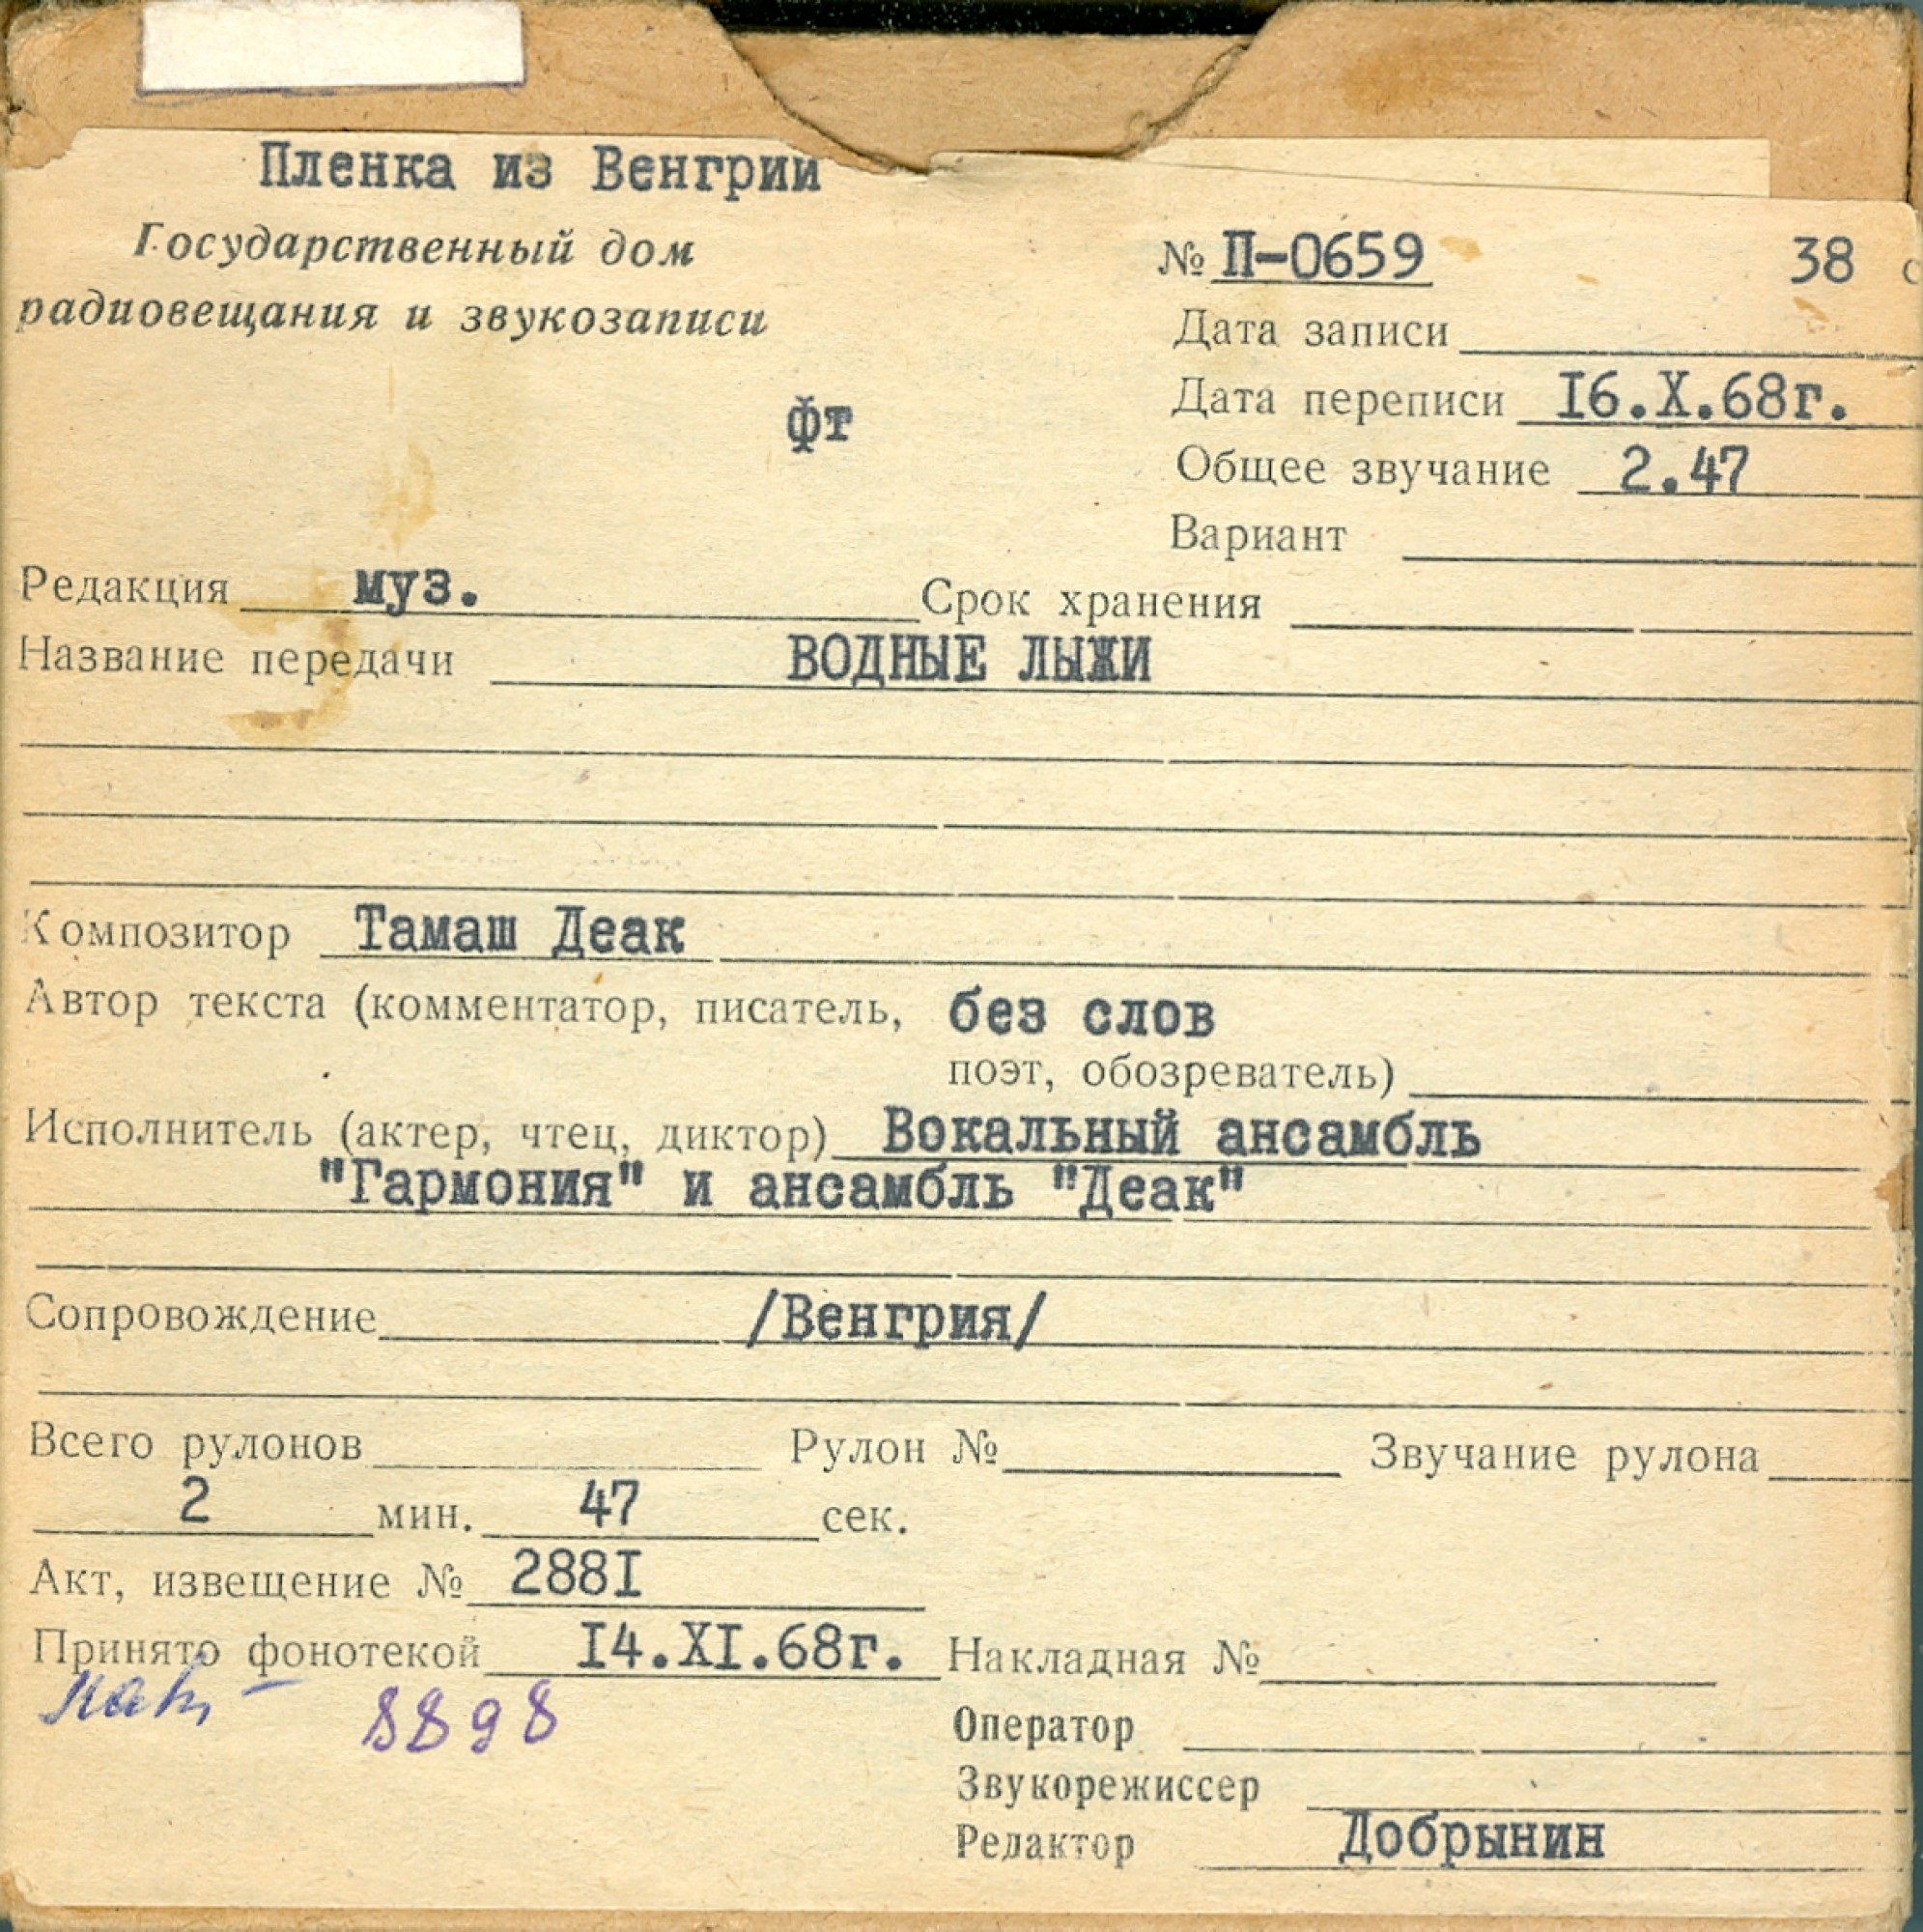 Пленка из Венгрии
Государственный дом
радиовещания и звукозаписи
№ П-0659 38 с
Дата записи
Дата переписи I6.X.68г.
фт
Общее звучание 2.47
Вариант
Редакция муз. Срок хранения
Название передачи ВОДНЫЕ ЛЫЖИ
Композитор Тамаш Деак
Автор текста (комментатор, писатель, без слов
поэт, обозреватель)
Исполнитель (актер, чтец, диктор) Вокальный ансамбль
"Гармония" и ансамбль "Деак"
Сопровождение /Венгрия/
Всего рулонов Рулон № Звучание рулона
2 мин. 47 сек.
Акт, извещение № 288I
Принято фонотекой I4.XI.68г. Накладная №
8898
Оператор
Звукорежиссер
Редактор Добрынин